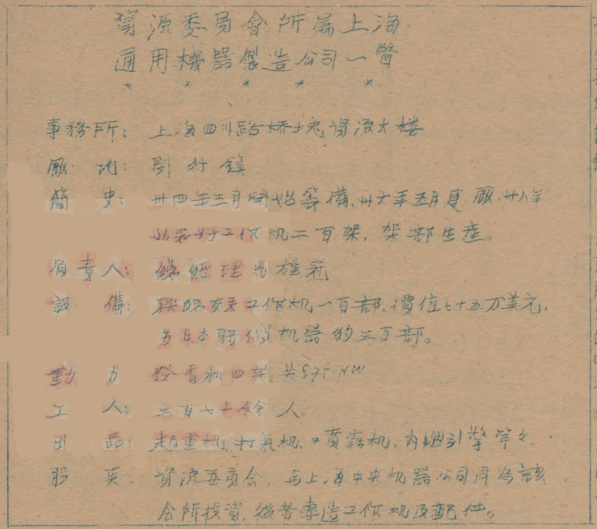 資源委員會所屬上海
通用機器製造公司一瞥
事務所：上海四川路橋塊資源大樓
廠址：閔行鎮
簡史：卅四年三月開始籌備，卅六年五月建廠，卅八年
工作机二百架，架部生產。
負責人：總經理
設備：工作机一百部，價值七十五万美元，
另日本賠償机器約三百部。
動力：發電机四架，共575 KW
工人：三百七十餘人
出品：起重机，打氣机，噴霧机，內燃引擎等々
股東：資源委員會，与上海中央机器公司同為該
會所投資，後者專造工作机及配件。